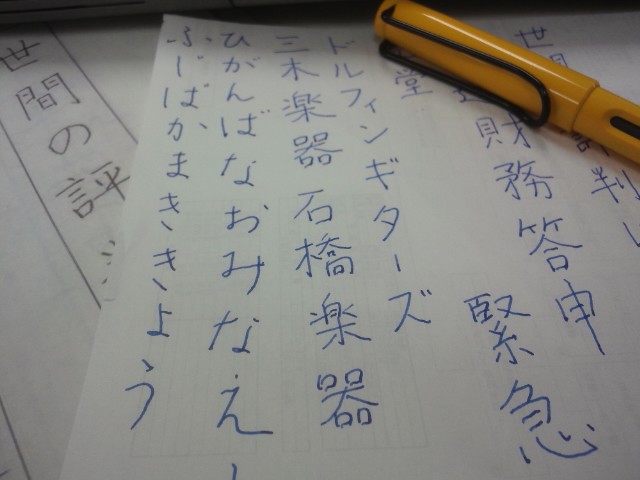 世間 判し
財務答申
緊急
堂
ドルフィンギターズ
三木楽器 石橋楽器
ひがんばなおみなえし
ふじばかまききょう
世間の評